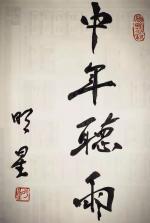 中年聽雨
明星